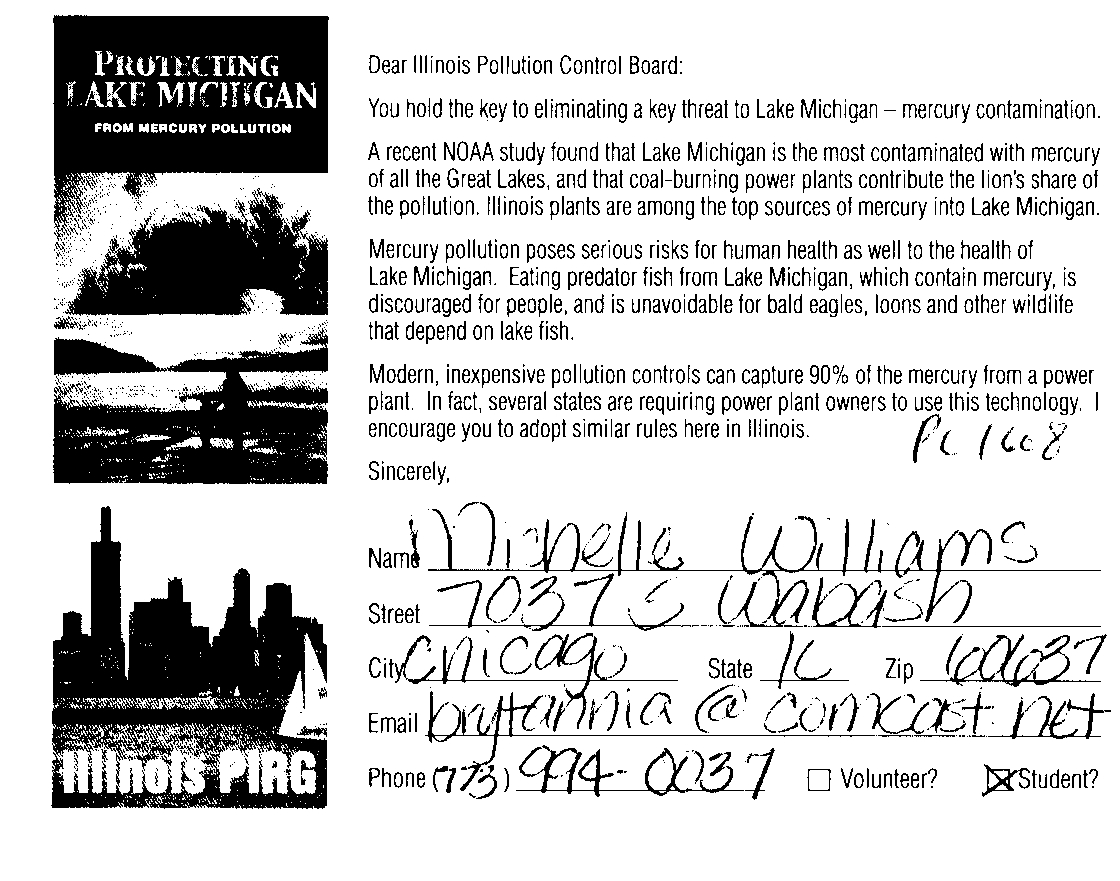 PROTECTING
LAKE MICHIGAN
FROM MERCURY POLLUTION
Illinois PIRG
Dear Illinois Pollution Control Board:
You hold the key to eliminating a key threat to Lake Michigan – mercury contamination.
A recent NOAA study found that Lake Michigan is the most contaminated with mercury
of all the Great Lakes, and that coal-burning power plants contribute the lion's share of
the pollution. Illinois plants are among the top sources of mercury into Lake Michigan.
Mercury pollution poses serious risks for human health as well to the health of
Lake Michigan. Eating predator fish from Lake Michigan, which contain mercury, is
discouraged for people, and is unavoidable for bald eagles, loons and other wildlife
that depend on lake fish.
Modern, inexpensive pollution controls can capture 90% of the mercury from a power
plant. In fact, several states are requiring power plant owners to use this technology. I
encourage you to adopt similar rules here in Illinois.
PC 1608
Sincerely,
Name Michelle Williams
Street 7037 S Wabash
City Chicago State IL Zip 60637
Email bryttannia@comcast.net
Phone (773) 994-0037 Volunteer? Student?